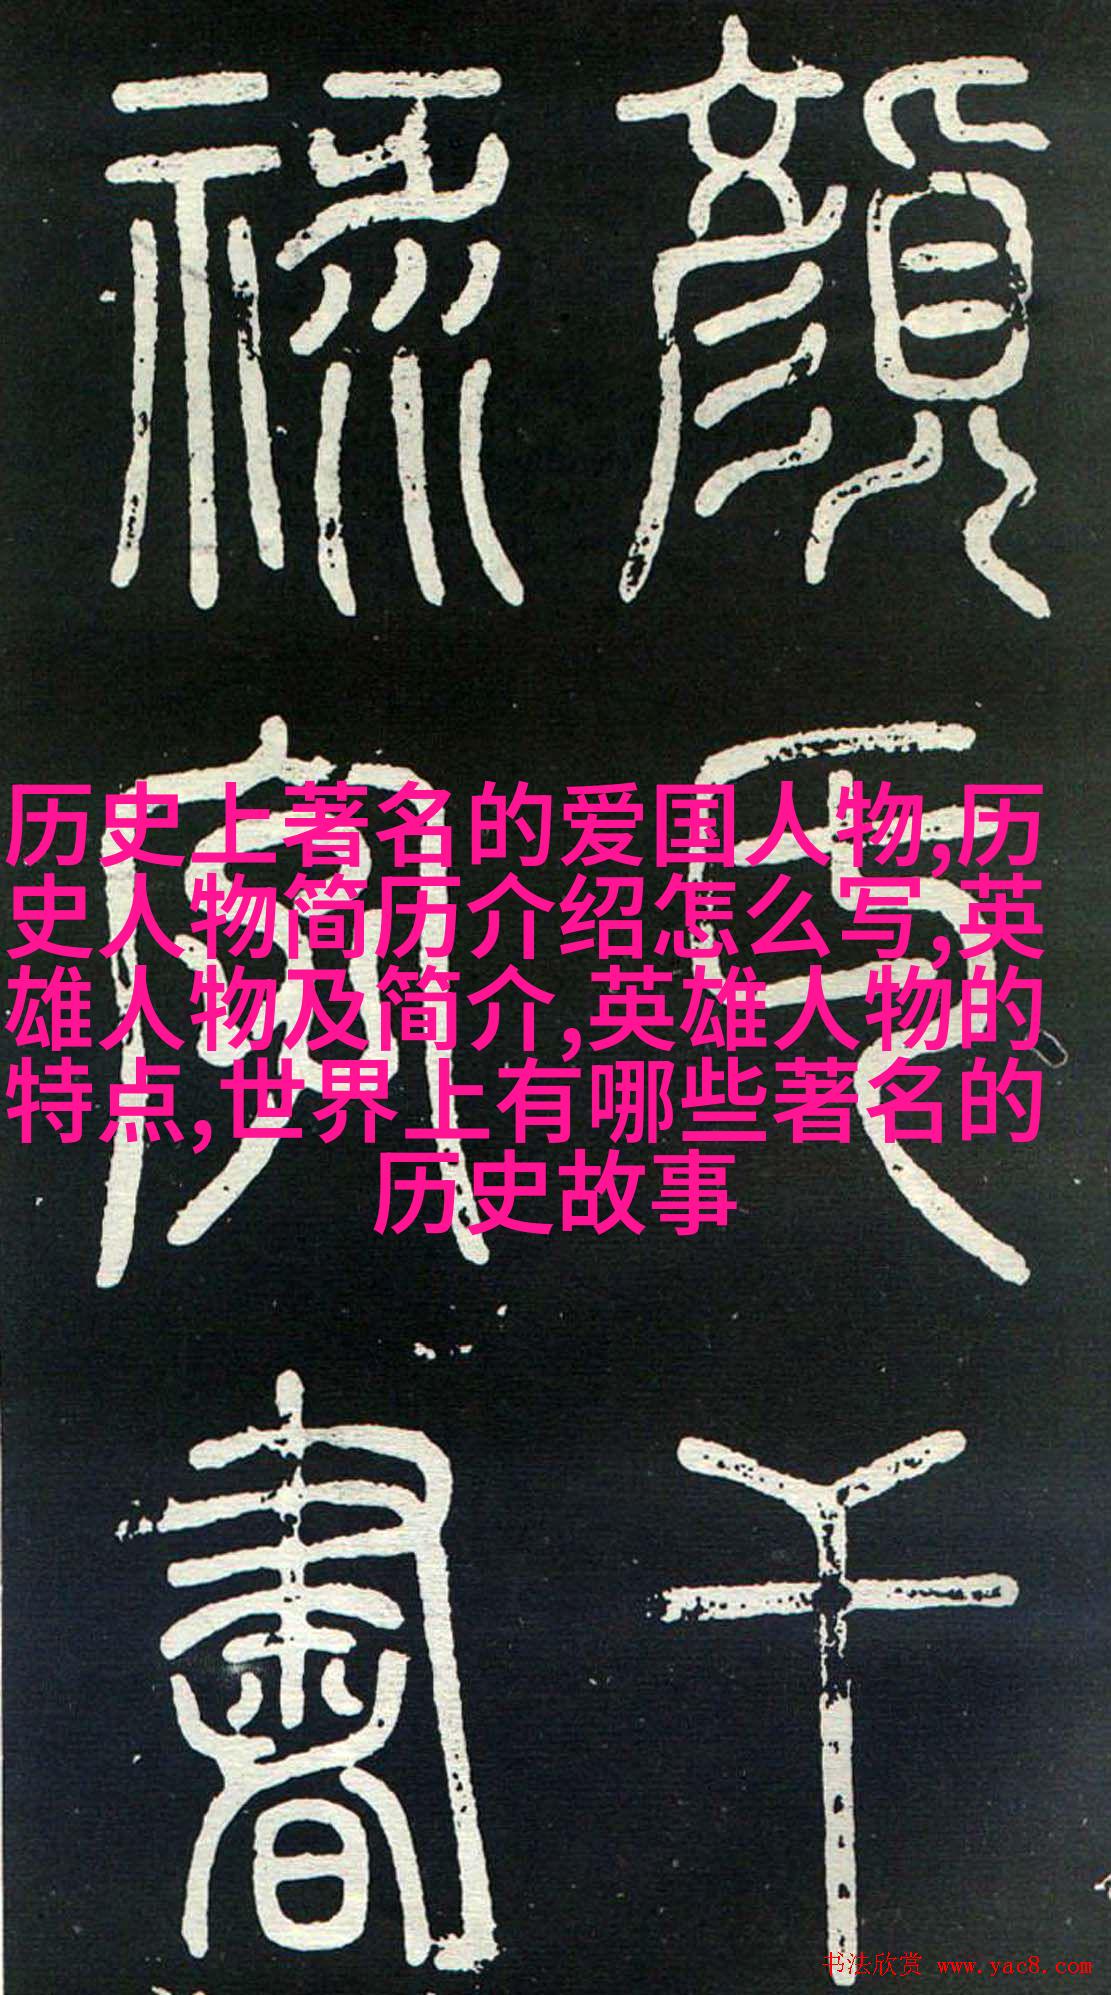 顏氏干
祿字書
历史上著名的爱国人物,历
史人物简历介绍怎么写,英
雄人物及简介,英雄人物的
特点,世界上有哪些著名的
历史故事
书法欣赏 www.yac8.com